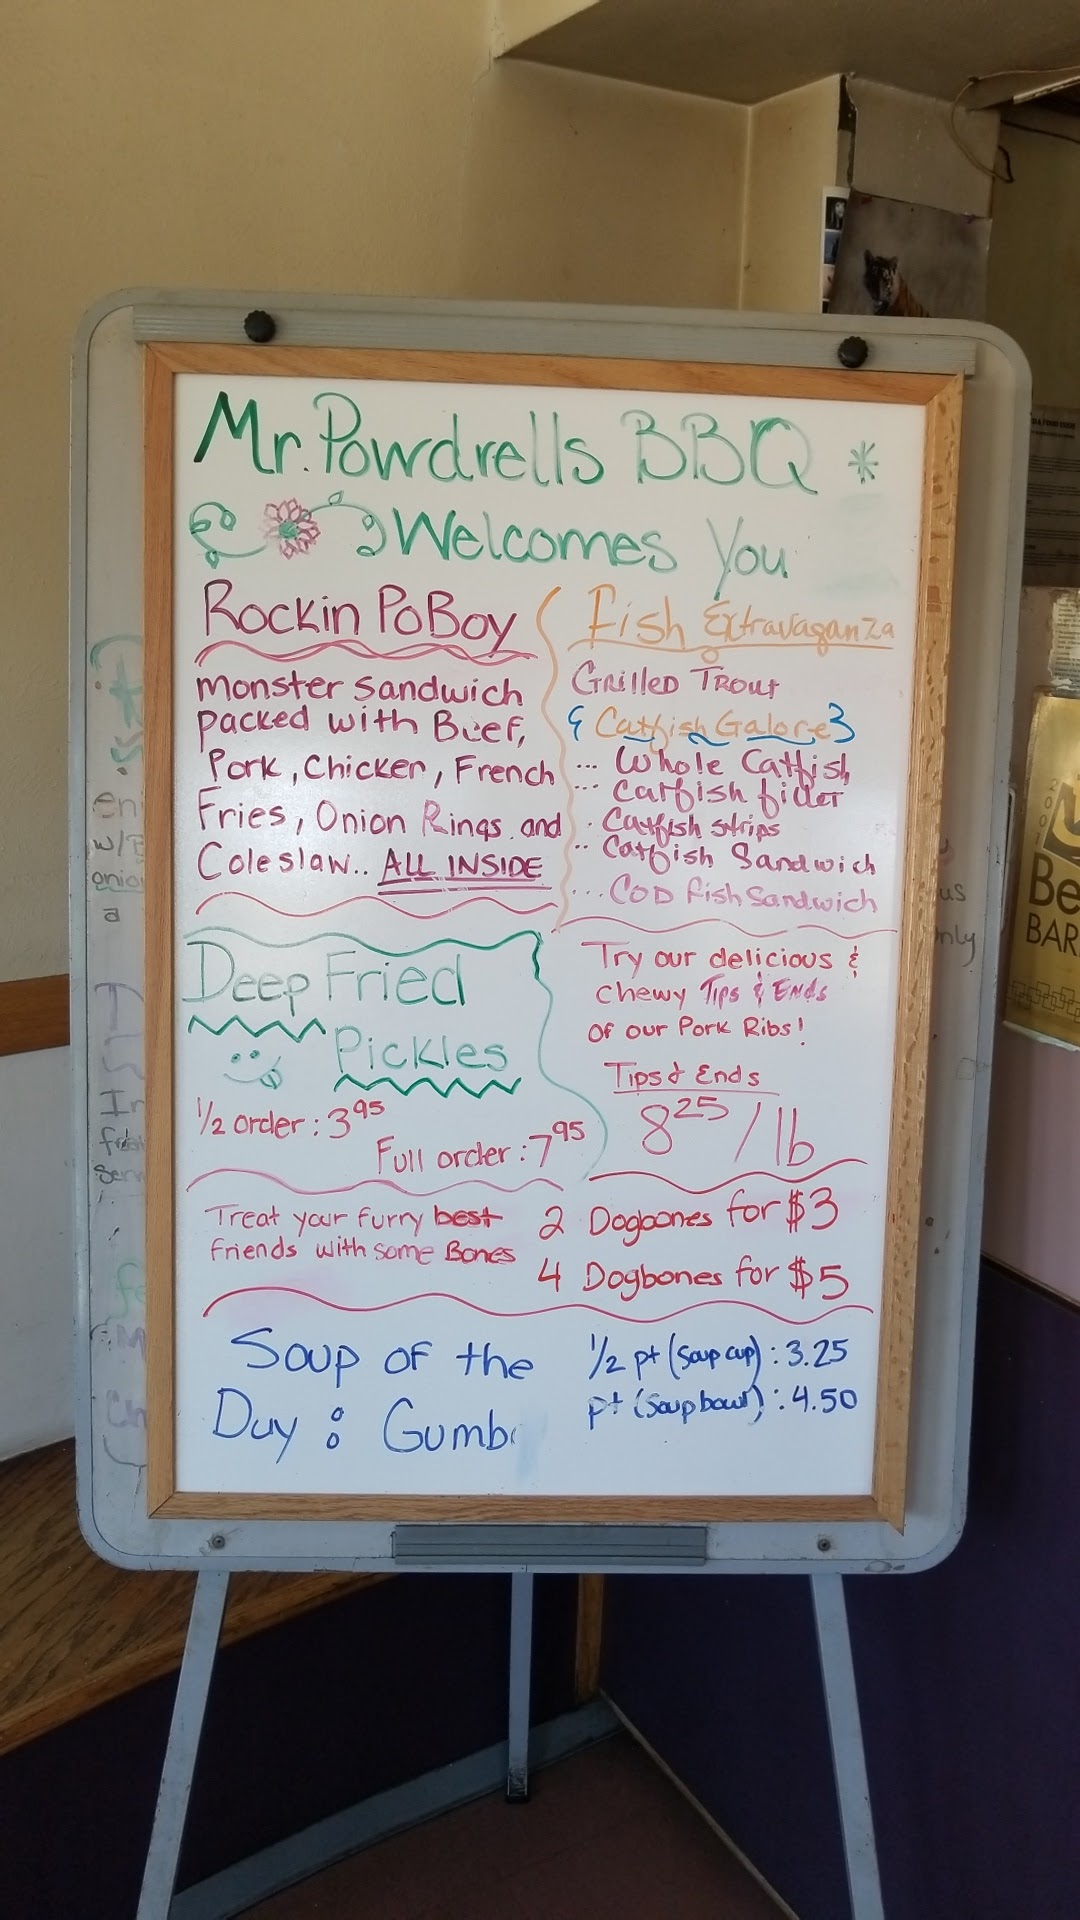 Mr. Powdrells BBQ *
Welcomes You
Rockin PoBoy
monster sandwich
packed with Beef,
Pork, Chicken, French
Fries, Onion Rings and
Coleslaw.. ALL INSIDE
Fish Extravaganza
Grilled Trout
& Catfish Galore
... Whole Catfish
... Catfish fillet
. Catfish strips
.. Catfish Sandwich
... COD fish Sandwich
Deep Fried
Pickles
1/2 order : 3 95
Full order : 7 95
Try our delicious &
chewy Tips & Ends
of our Pork Ribs!
Tips & Ends
8 25 / lb
Treat your furry best
friends with some Bones
2 Dogbones for $3
4 Dogbones for $5
Soup of the
Day : Gumb
1/2 pt (soup cup) : 3.25
pt (soup bowl) : 4.50
Be
BAR